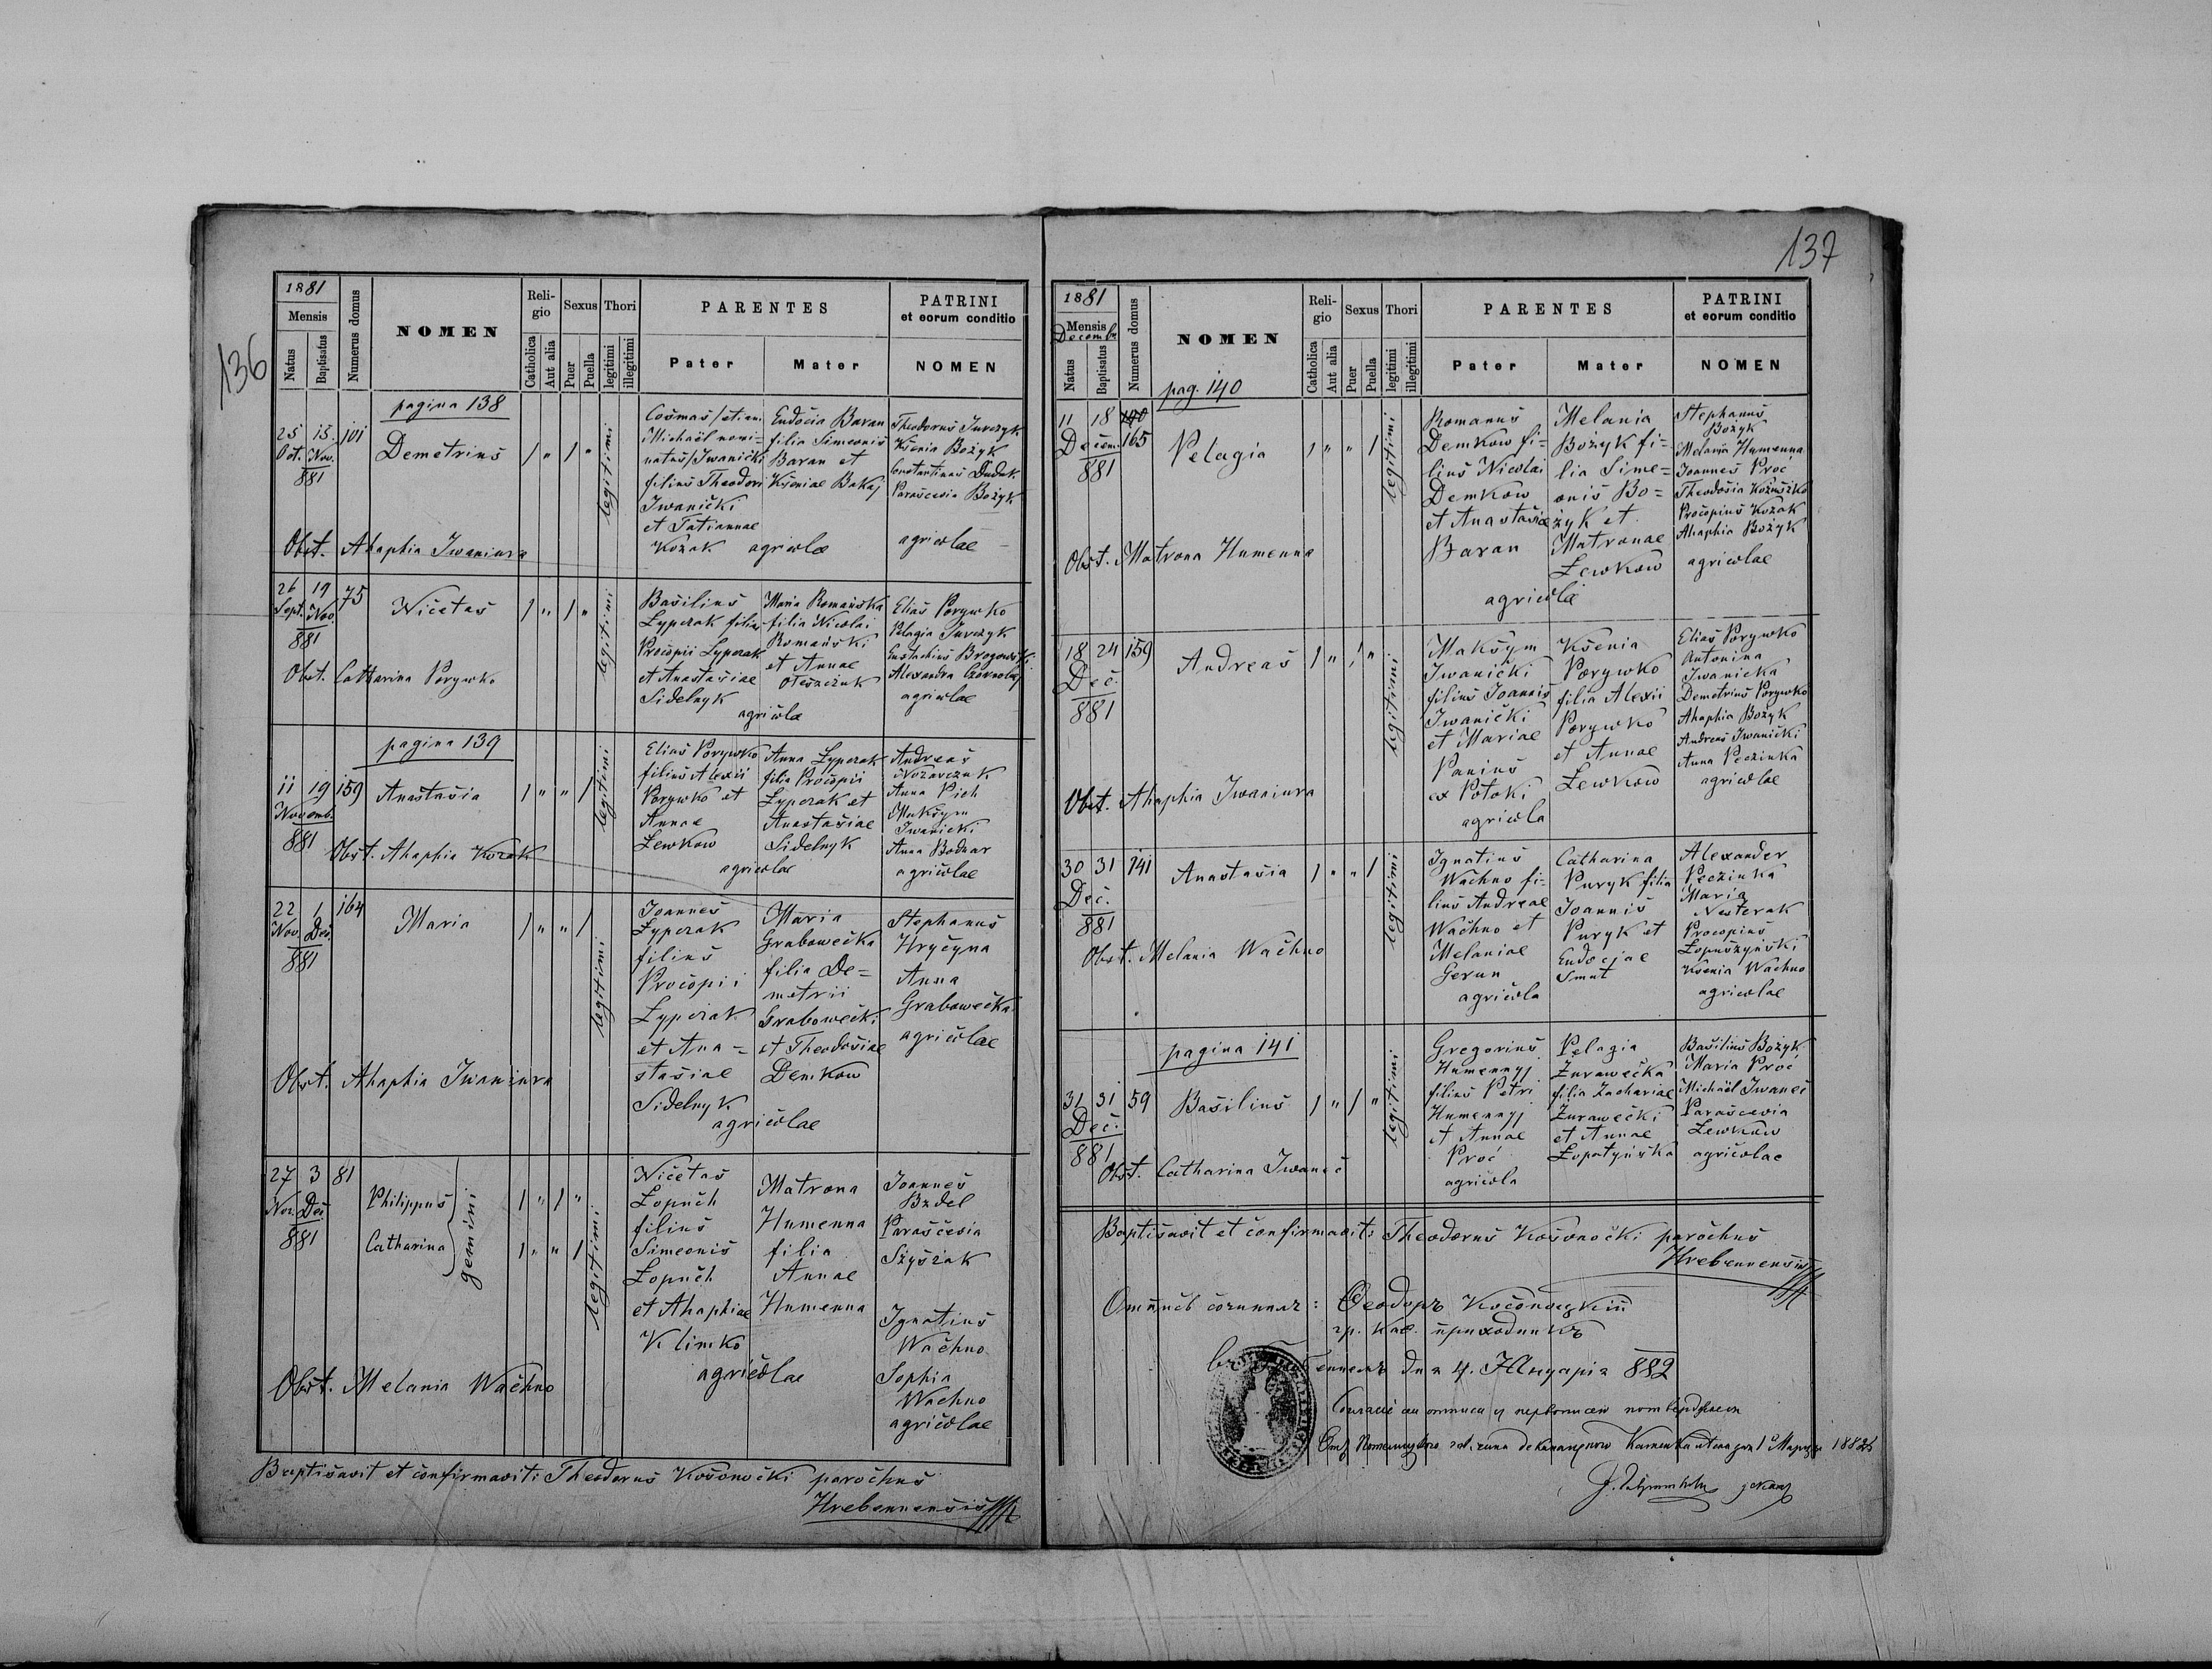 136
1881
Mensis
Natus
Baptisatus
Numerus domus
NOMEN
Reli-
gio
Catholica
Aut alia
Sexus
Puer
Puella
Thori
legitimi
illegitimi
PARENTES
Pater
Mater
PATRINI
et eorum conditio
NOMEN
pagina 138
25 13. 101
Oct. Nov.
881
Demetrius
1 " 1 "
legitimi
Cosmas /etiam
Michaël nomi-
natus/ Iwanicki
filius Theodori
Iwanički
et Tatiannae
Kozak
Eudocia Baran
filia Simeonis
Baran et
Kseniae Bakaj
agricolae
Theodorus Jurczyk
Ksenia Bożyk
Constantinus Dudak
Parascevia Bożyk
agricolae
Obst. Ahaphia Iwaniura
26 19 75
Sept. Nov.
881
Nicetas
1 " 1 "
legitimi
Basilius
Lyperak filius
Procopii Lyperak
et Anastasiae
Sidelnyk
Maria Romańska
filia Nicolai
Romański
et Annae
Oleszczuk
agricolae
Elias Porywko
Pelagia Jurczyk
Eustachius Brogowski
Alexandra Czornobaj
agricolae
Obst. Catharina Porywko
pagina 139
11 19 159
Novemb.
881
Anastasia
1 " " 1
legitimi
Elias Porywko
filius Alexii
Porywko et
Annae
Lewkow
Anna Lyperak
filia Procopii
Lyperak et
Anastasiae
Sidelnyk
agricolae
Andreas
Anna Pich
Maksym
Iwanicki
Anna Bodnar
agricolae
Obst. Ahaphia Kozak
22 1 164
Nov. Dec.
881
Maria
1 " " 1
legitimi
Joannes
Lyperak
filius
Procopii
Lyperak
et Ana=
stasiae
Sidelnyk
Maria
Grabowečka
filia De=
metrii
Grabowecki
et Theodosiae
Demkow
agricolae
Stephanus
Hryčyna
Anna
Grabowečka
agricolae
Obst. Ahaphia Iwaniura
27 3 81
Nov. Dec.
881
Philippus
Catharina
gemini
1 " 1 "
1 " " 1
legitimi
Nicetas
Łopuch
filius
Simeonis
Łopuch
et Ahaphiae
Klimko
Matrona
Humenna
filia
Annae
Humenna
agricolae
Joannes
Bzdel
Parascevia
Ignatius
Wachno
Sophia
Wachno
agricolae
Obst. Melania Wachno
Baptisavit et confirmavit: Theodorus Kosonočki parochus
Hrebennensis
137
1881
Mensis
Decembr.
Natus
Baptisatus
Numerus domus
NOMEN
Reli-
gio
Catholica
Aut alia
Sexus
Puer
Puella
Thori
legitimi
illegitimi
PARENTES
Pater
Mater
PATRINI
et eorum conditio
NOMEN
pag. 140
11 18 165
Decem.
881
Pelagia
1 " " 1
legitimi
Romanus
Demkow fi=
lius Nicolai
Demkow
et Anastasiae
Baran
Melania
Bożyk fi=
lia Sime=
onis Bo=
żyk et
Matronae
Lewkow
agricolae
Stephanus
Bożyk
Melania Humenna
Joannes Proć
Theodosia Kożuszko
Procopius Kozak
Ahaphia Bożyk
agricolae
Obst. Matrona Humenna
18 24 159
Dec.
881
Andreas
1 " 1 "
legitimi
Maksym
Iwanički
filius Joannis
Iwanički
et Mariae
Panius
ex Potoki
agricola
Ksenia
Porywko
filia Alexii
Porywko
et Annae
Lewkow
Elias Porywko
Antonina
Iwanicka
Demetrius Porywko
Ahaphia Bożyk
Andreas Iwanički
Anna Peczinka
agricolae
Obst. Ahaphia Iwaniura
30 31 141
Dec.
881
Anastasia
1 " " 1
legitimi
Ignatius
Wachno fi=
lius Andreae
Wachno et
Melaniae
Gerun
agricola
Catharina
Puryk filia
Joannis
Puryk et
Eudociae
Smut
Alexander
Peczinka
Maria
Nesterak
Procopius
Łopuszyński
Ksenia Wachno
agricolae
Obst. Melania Wachno
pagina 141
31 31 59
Dec.
881
Basilius
1 " 1 "
legitimi
Gregorius
Humennyj
filius Petri
Humennyj
et Annae
Proć
agricola
Pelagia
Żurawečka
filia Zachariae
Żurawečki
et Annae
Łopatyńska
Basilius Bożyk
Maria Proć
Michaël Iwaneč
Parascevia
Lewkow
agricolae
Obst. Catharina Iwaneč
Baptisavit et confirmavit: Theodorus Kosonočki parochus
Hrebennensis
Отписъ сочинилъ: Ѳеодоръ Косоноцкій
гр. каѳ. приходникъ
дня 4. Януарія 882